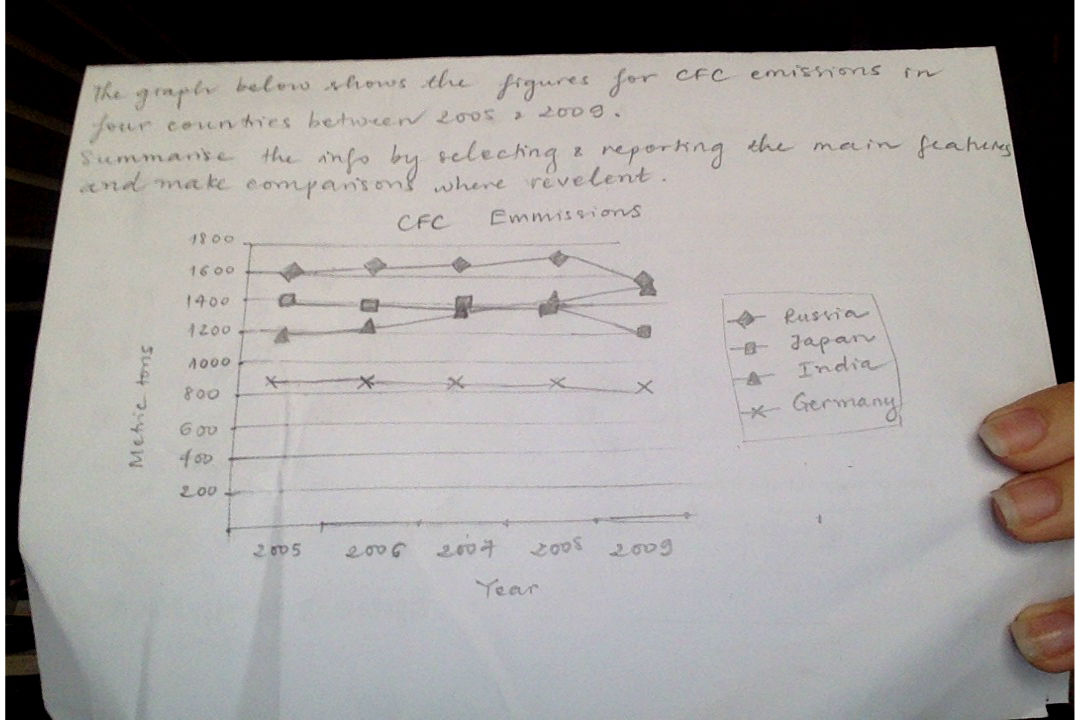 The graph below shows the figures for CFC emissions in
four countries between 2005 & 2009.
Summarise the info by selecting & reporting the main features
and make comparisons where revelent.
CFC Emmissions
1800
1600
1400
1200
1000
800
600
400
200
Metric tons
2005 2006 2007 2008 2009
Year
Russia
Japan
India
Germany